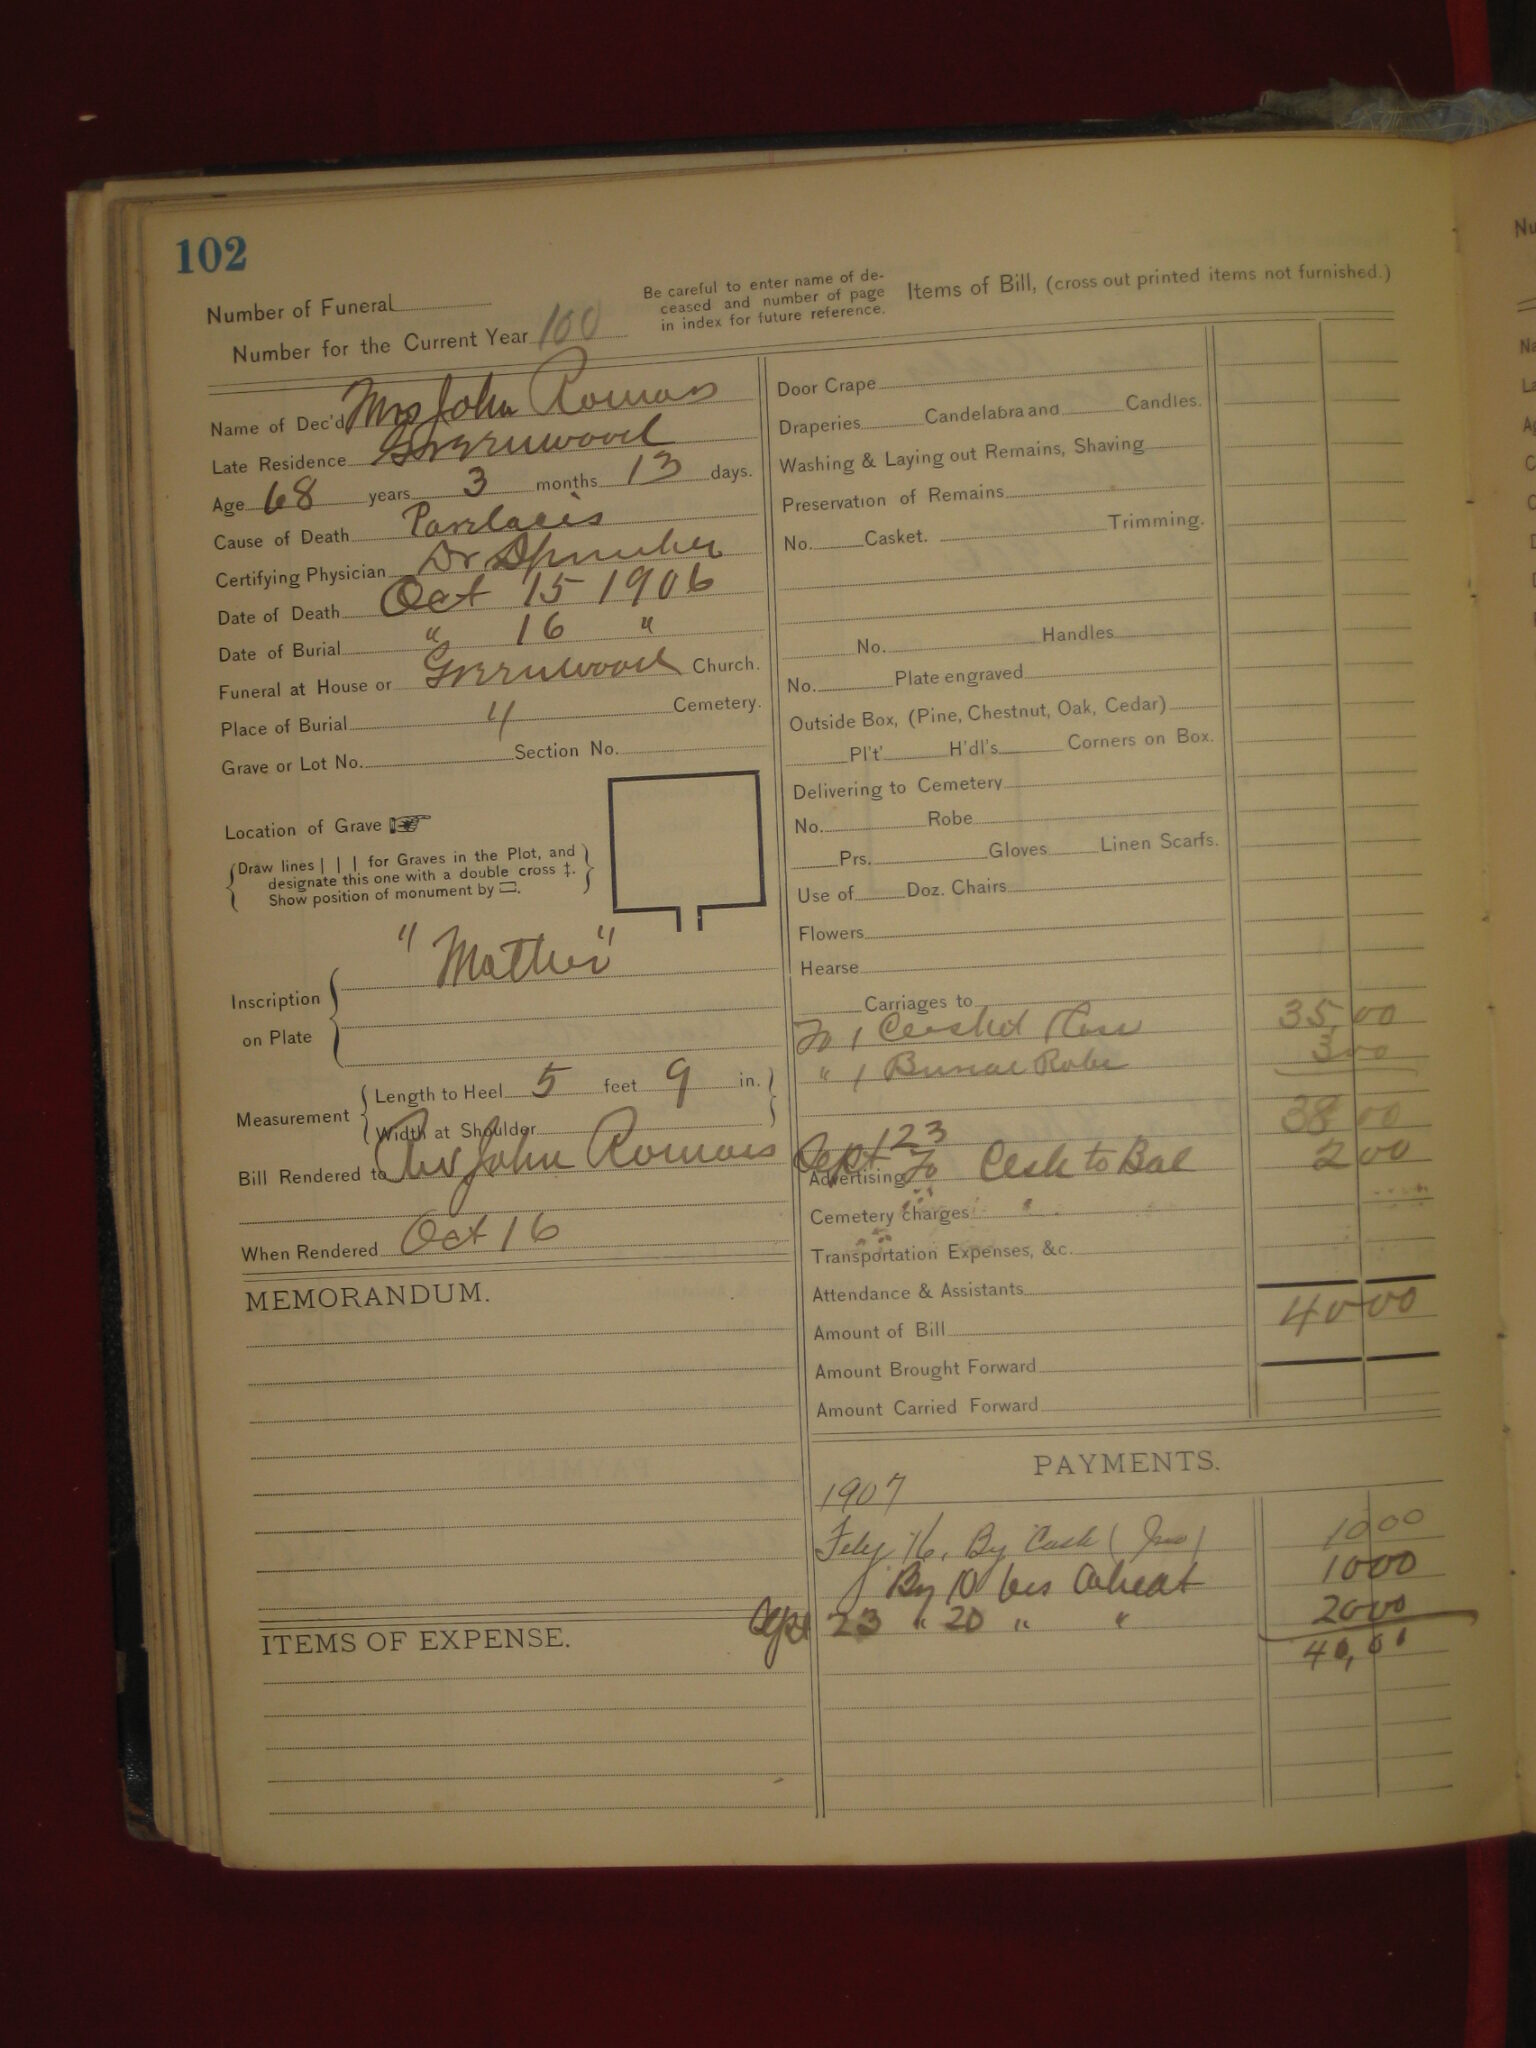 102
Number of Funeral
Number for the Current Year 100
Be careful to enter name of de-
ceased and number of page
in index for future reference.
Name of Dec'd Mrs John Romans
Late Residence Greenwood
Age 68 years 3 months 13 days.
Cause of Death
Certifying Physician Dr
Date of Death Oct 15 1906
Date of Burial " 16 "
Funeral at House or Greenwood Church.
Place of Burial " Cemetery.
Grave or Lot No. Section No.
Location of Grave
Draw lines | | | for Graves in the Plot, and
designate this one with a double cross ‡.
Show position of monument by ▭.
Inscription
on Plate
"Mother"
Measurement
Length to Heel 5 feet 9 in.
Width at Shoulder
Bill Rendered to Mr John Romans
When Rendered Oct 16
MEMORANDUM.
ITEMS OF EXPENSE.
Items of Bill, (cross out printed items not furnished.)
Door Crape
Draperies Candelabra and Candles.
Washing & Laying out Remains, Shaving
Preservation of Remains
No. Casket. Trimming.
No. Handles
No. Plate engraved
Outside Box, (Pine, Chestnut, Oak, Cedar)
Pl't' H'dl's Corners on Box.
Delivering to Cemetery
No. Robe
Prs. Gloves Linen Scarfs.
Use of Doz. Chairs
Flowers
Hearse
Carriages to
To 1 Casket 35,00
" 1 Burial Robe 300
38 00
Sept 23
Advertising To Cash to Bal 2 00
Cemetery charges
Transportation Expenses, &c.
Attendance & Assistants
Amount of Bill 40 00
Amount Brought Forward
Amount Carried Forward
PAYMENTS.
1907
Feby 16, By Cash 10 00
By 10 bus Wheat 10 00
Sept 23 " 20 " " 20 00
40,00